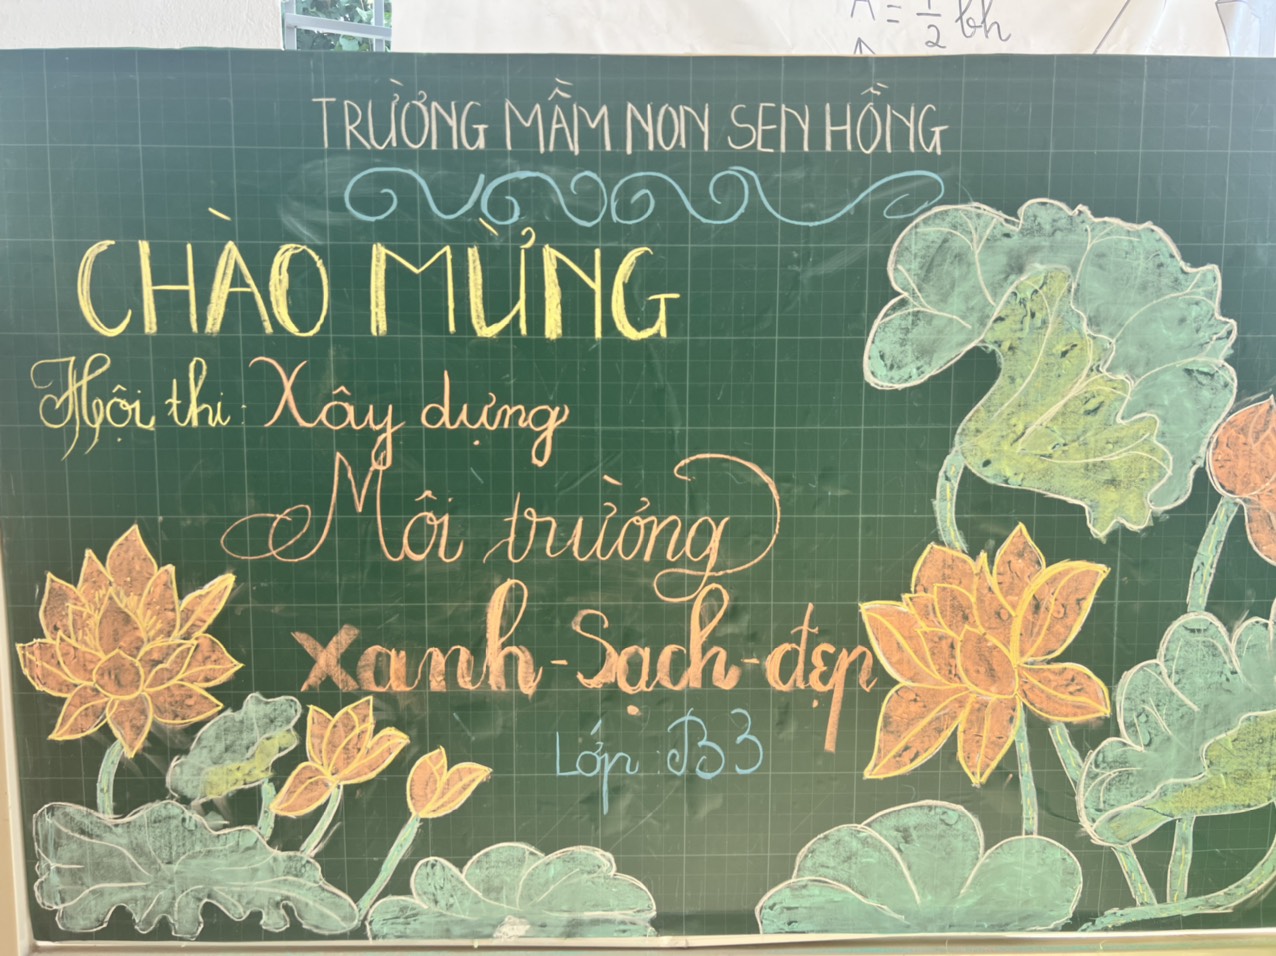 A = 1/2 bh
TRƯỜNG MẦM NON SEN HỒNG
CHÀO MỪNG
Hội thi: Xây dựng
Môi trường
xanh - Sạch - đẹp
Lớp: B3